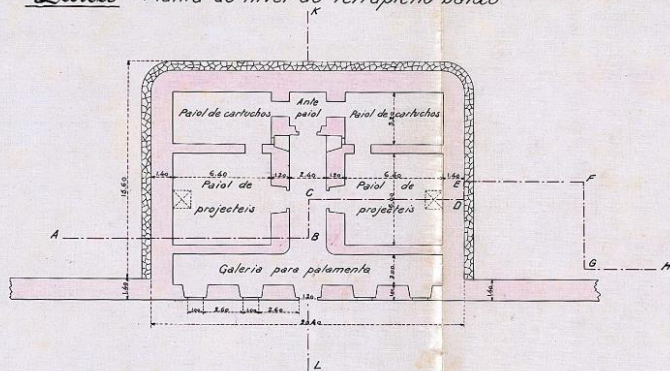 Planta ao nivel do Terrapleno baixo
K
Paiol de cartuchos
Ante
paiol
Paiol de cartuchos
15.60
1.40
6.60
1.20
2.40
1.20
6.60
1.40
Paiol de
projecteis
Paiol de
projecteis
C
E
F
D
A
B
G
H
Galeria para palamenta
1.40
1.20
1.40
1.00
2.60
1.00
2.60
20.40
L